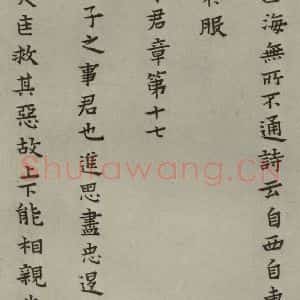 海無所不通詩云自西自東
服
君章第十七
子之事君也進思盡忠退
匡救其惡故上下能相親
Shufawang.CN